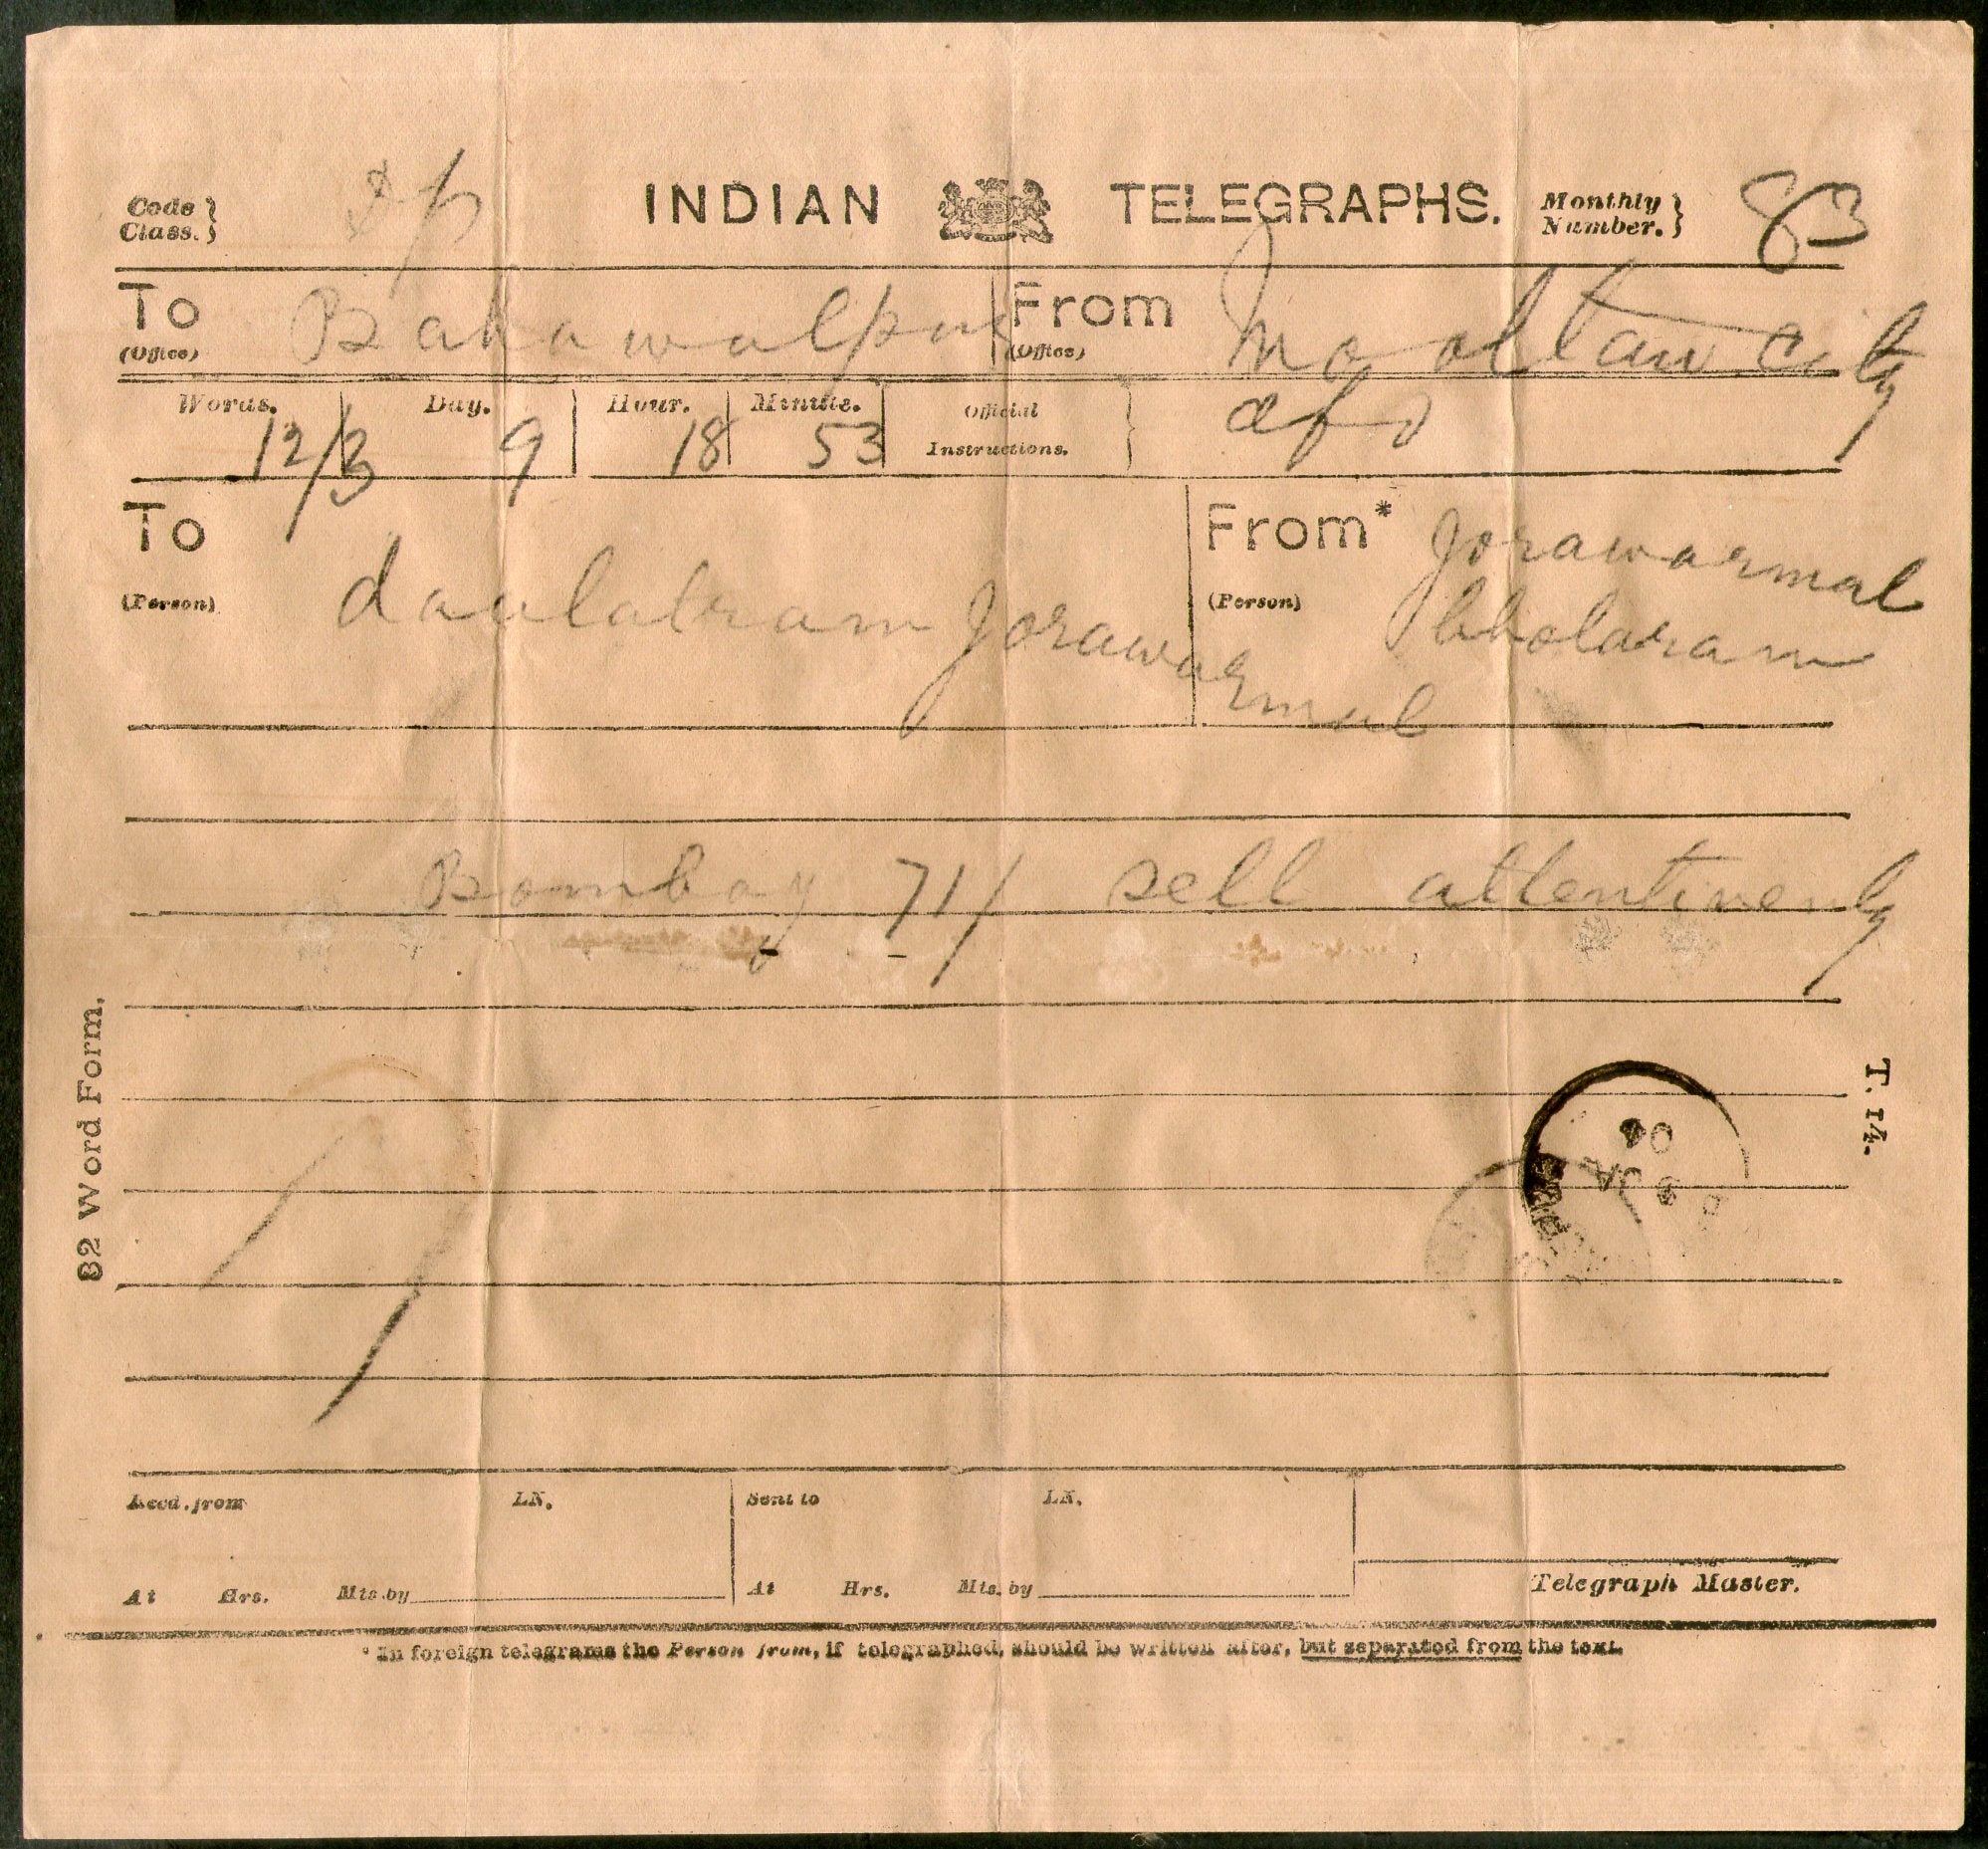 Code Class. } INDIAN TELEGRAPHS. Monthly Number. } 83
To (Office) Bahawalpur From (Office) Mooltan City
Words. Day. Hour. Minute. Official Instructions.
12/3 9 18 53
To (Person) daulatram Jorawarmal From* (Person) Jorawarmal bholaram
Bombay 71/ sell attentively
32 Word Form.
T. 14.
04
Recd. from LN. Sent to LN.
At Hrs. Mts. by At Hrs. Mts. by Telegraph Master.
* In foreign telegrams the Person from, if telegraphed, should be written after, but separated from the text.